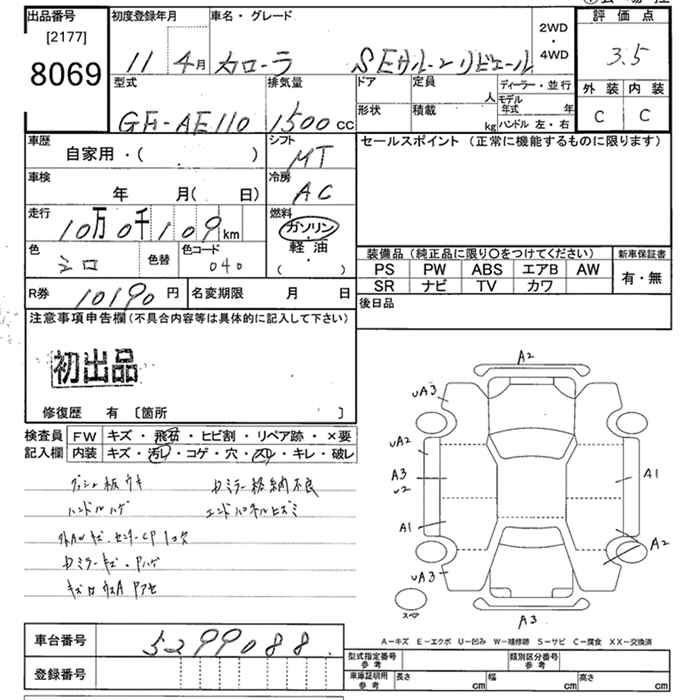 出品番号
[2177]
8069
初度登録年月
11 4月
車名・グレード
カローラ SEサルーン リビエール
2WD
・
4WD
評価点
3.5
外装 内装
C C
型式
GF-AE110
排気量
1500 CC
ドア
定員
人
ディーラー・並行
モデル年式 年
形状
積載
kg
ハンドル 左・右
車歴
自家用・( )
シフト
MT
セールスポイント (正常に機能するものに限ります)
車検
年 月( 日)
冷房
AC
走行
10万0千109km
燃料
ガソリン
・
軽油
( )
色
シロ
色替
色コード
040
装備品 (純正品に限り〇をつけてください)
新車保証書
PS PW ABS エアB AW
SR ナビ TV カワ
有・無
後日品
R券
10190 円
名変期限 月 日
注意事項申告欄(不具合内容等は具体的に記入して下さい)
初出品
修復歴 有 〔箇所 〕
検査員記入欄
FW キズ・飛石・ヒビ割・リペア跡・×要
内装 キズ・汚レ・コゲ・穴・スレ・キレ・破レ
ダッシュ板ウキ
ハンドルハゲ
カミラー格納不良
エンドパネルヒズミ
外AWキズ・センターCP1コ欠
カミラーキズ・Pハゲ
A2
uA3
uA2
A3
u2
A1
uA3
スペア
A1
A2
A3
A-キズ E-エクボ U-凹み W-補修跡 S-サビ C-腐食 XX-交換済
車台番号
5299088
登録番号
型式指定番号 参考
類別区分番号 参考
車庫証明用 参考
長さ cm
幅 cm
高さ cm